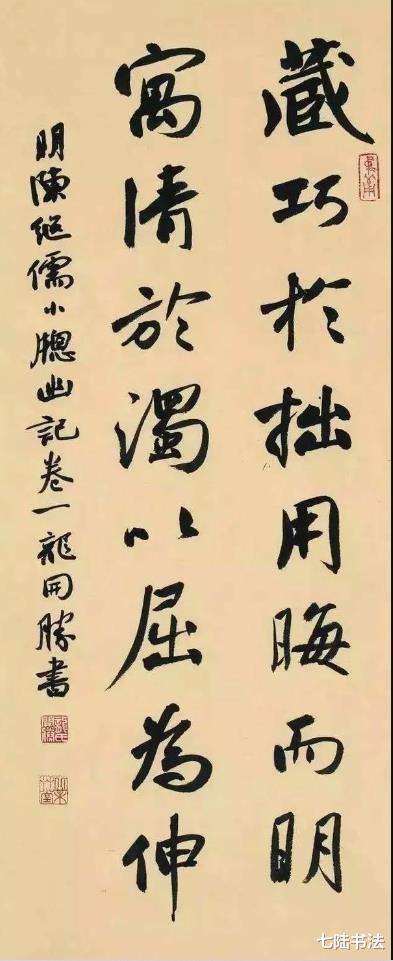 藏巧於拙用晦而明
寓清於濁以屈為伸
明陳繼儒小窗幽記卷一龍開勝書
七陆书法